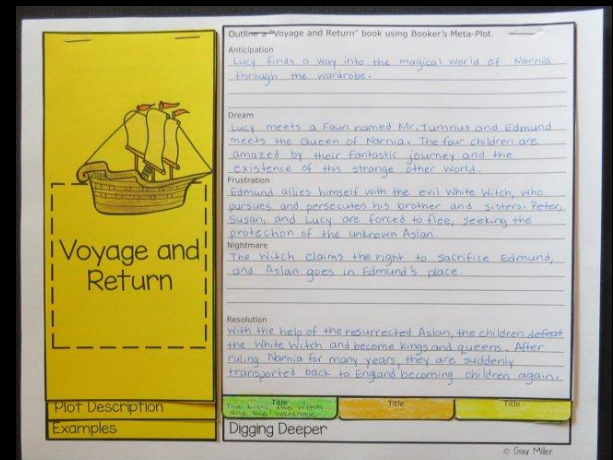 Voyage and
Return
Plot Description
Examples
Outline a "Voyage and Return" book using Booker's Meta-Plot.
Anticipation
Lucy finds a way into the magical world of Narnia
through the wardrobe.
Dream
Lucy meets a Faun named Mr. Tumnus and Edmund
meets the Queen of Narnia. The four children are
amazed by their fantastic journey and the
existence of this strange other world.
Frustration
Edmund allies himself with the evil White Witch, who
pursues and persecutes his brother and sisters. Peter,
Susan, and Lucy are forced to flee, seeking the
protection of the unknown Aslan.
Nightmare
The Witch claims the right to sacrifice Edmund,
and Aslan goes in Edmund's place.
Resolution
With the help of the resurrected Aslan, the children defeat
the White Witch and become kings and queens. After
ruling Narnia for many years, they are suddenly
transported back to England becoming children again.
Title
The Lion, the Witch
and the Wardrobe
Title
Title
Digging Deeper
© Gay Miller